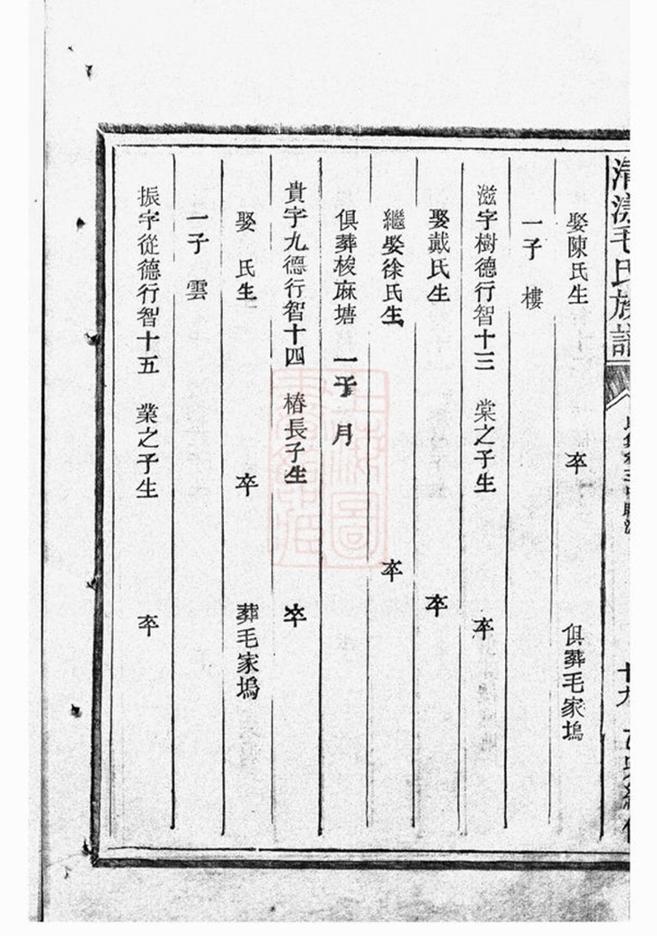 清漾毛氏族譜
十九
娶陳氏生 卒 俱葬毛家塢
一子 樓
滋字樹德行智十三 棠之子生 卒
娶戴氏生 卒
繼娶徐氏生 卒
俱葬梭麻塘 一子 月
貴字九德行智十四 椿長子生 卒
娶 氏生 卒 葬毛家塢
一子 雲
振字從德行智十五 業之子生 卒